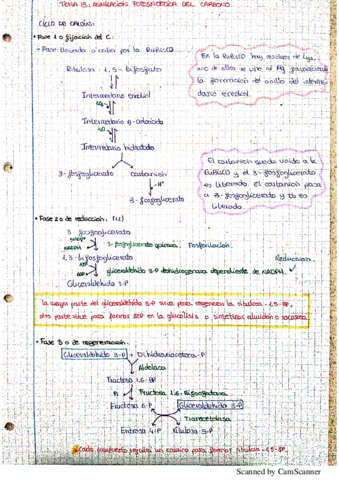 TEMA 13: ASIMILACIÓN FOTOSINTÉTICA DEL CARBONO
CICLO DE CALVIN:
• Fase 1 o fijación del C:
- Fase llevada a cabo por la RUBISCO
Ribulosa - 1,5 - bifosfato
Intermediario enediol
CO2
Intermediario β-cetoácido
H2O
Intermediario hidratado
3-fosfoglicerato carbanion
-H+
3-fosfoglicerato
En la RUBISCO hay residuos de Lys,
uno de ellos se une al Mg favoreciendo
la formación del anillo del interme
diario enediol.
El carbanion queda unido a la
RUBISCO y el 3-fosfoglicerato
es liberado. El carbanion pasa
a 3-fosfoglicerato y tb es
liberado.
• Fase 2 o de reducción: (x2)
3-fosfoglicerato
3-fosfoglicerato quinasa. Fosforilación.
1,3-bifosfoglicerato
Reducción.
gliceraldehído 3-P deshidrogenasa dependiente de NADPH.
Gliceraldehído 3-P
La mayor parte del gliceraldehído 3-P sirve para regenerar la ribulosa-1,5-BP,
otra parte sirve para formar en la glucólisis o sintetizar almidón o sacarosa.
• Fase 3 o de regeneración:
Gliceraldehído 3-P + Dihidroxiacetona-P
Aldolasa
Fructosa 1,6-BP
Pi Fructosa 1,6-Bifosfatasa
Fructosa 6-P Gliceraldehído 3-P
Transcetolasa
Eritrosa 4-P Xilulosa 5-P
Cada compuesto seguirá un camino para formar ribulosa-1,5-BP.
Scanned by CamScanner